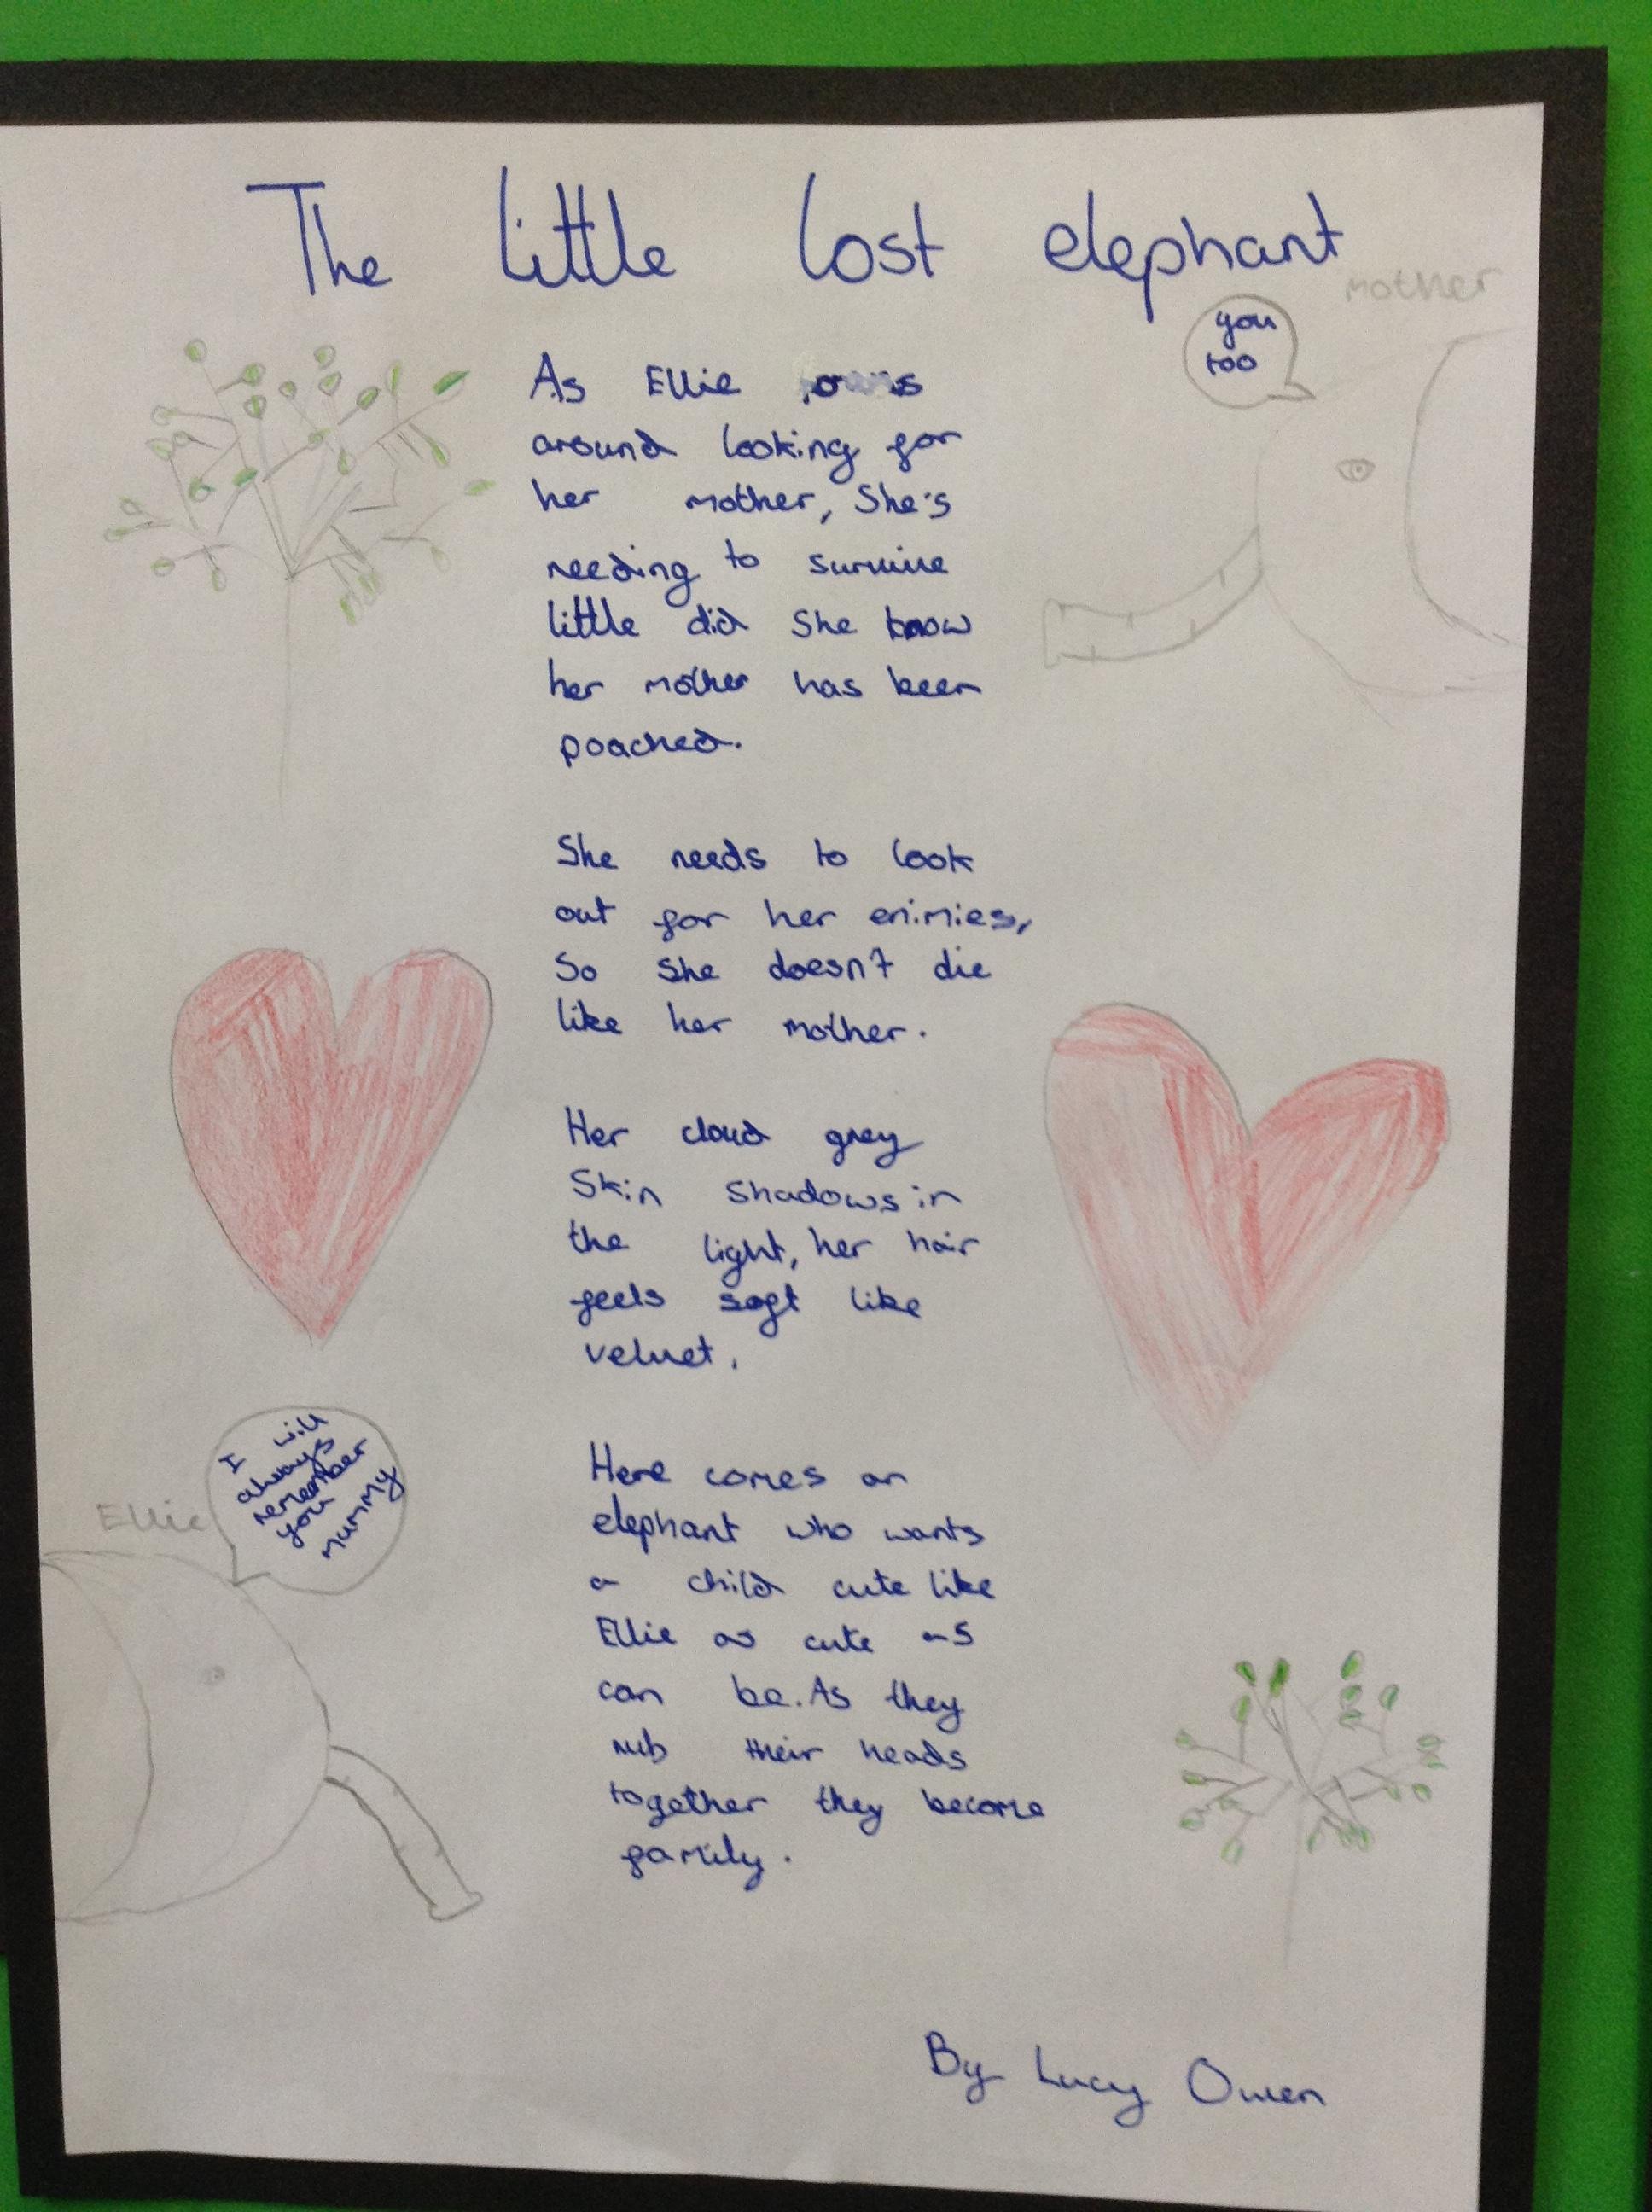 The little lost elephant
mother
you
too
As Ellie
around looking for
her mother, She's
needing to survive
little did she know
her mother has been
poached.
She needs to look
out for her enimies,
So she doesn't die
like her mother.
Her cloud grey
Skin shadows in
the light, her hair
feels soft like
velvet.
I will
always
remember
you
mummy
Ellie
Here comes an
elephant who wants
a child cute like
Ellie as cute as
can be. As they
rub their heads
together they become
family.
By Lucy Owen